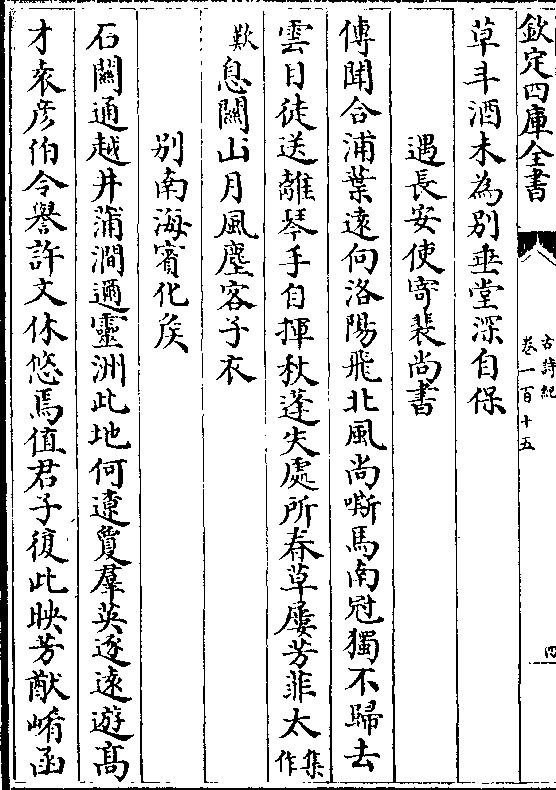 欽定四庫全書
古詩紀
卷一百十五
四
草斗酒未為别垂堂深自保
遇長安使寄裴尚書
傳聞合浦葉遠向洛陽飛北風尚嘶馬南冠獨不歸去
雲目徒送離琴手自揮秋蓬失處所春草屢芳菲太集作
歎息關山月風塵客子衣
别南海賓化侯
石闕通越井蒲澗邇靈洲此地何遼敻羣英逐遠遊髙
才袁彦伯令譽許文休悠焉值君子復此映芳猷崤函